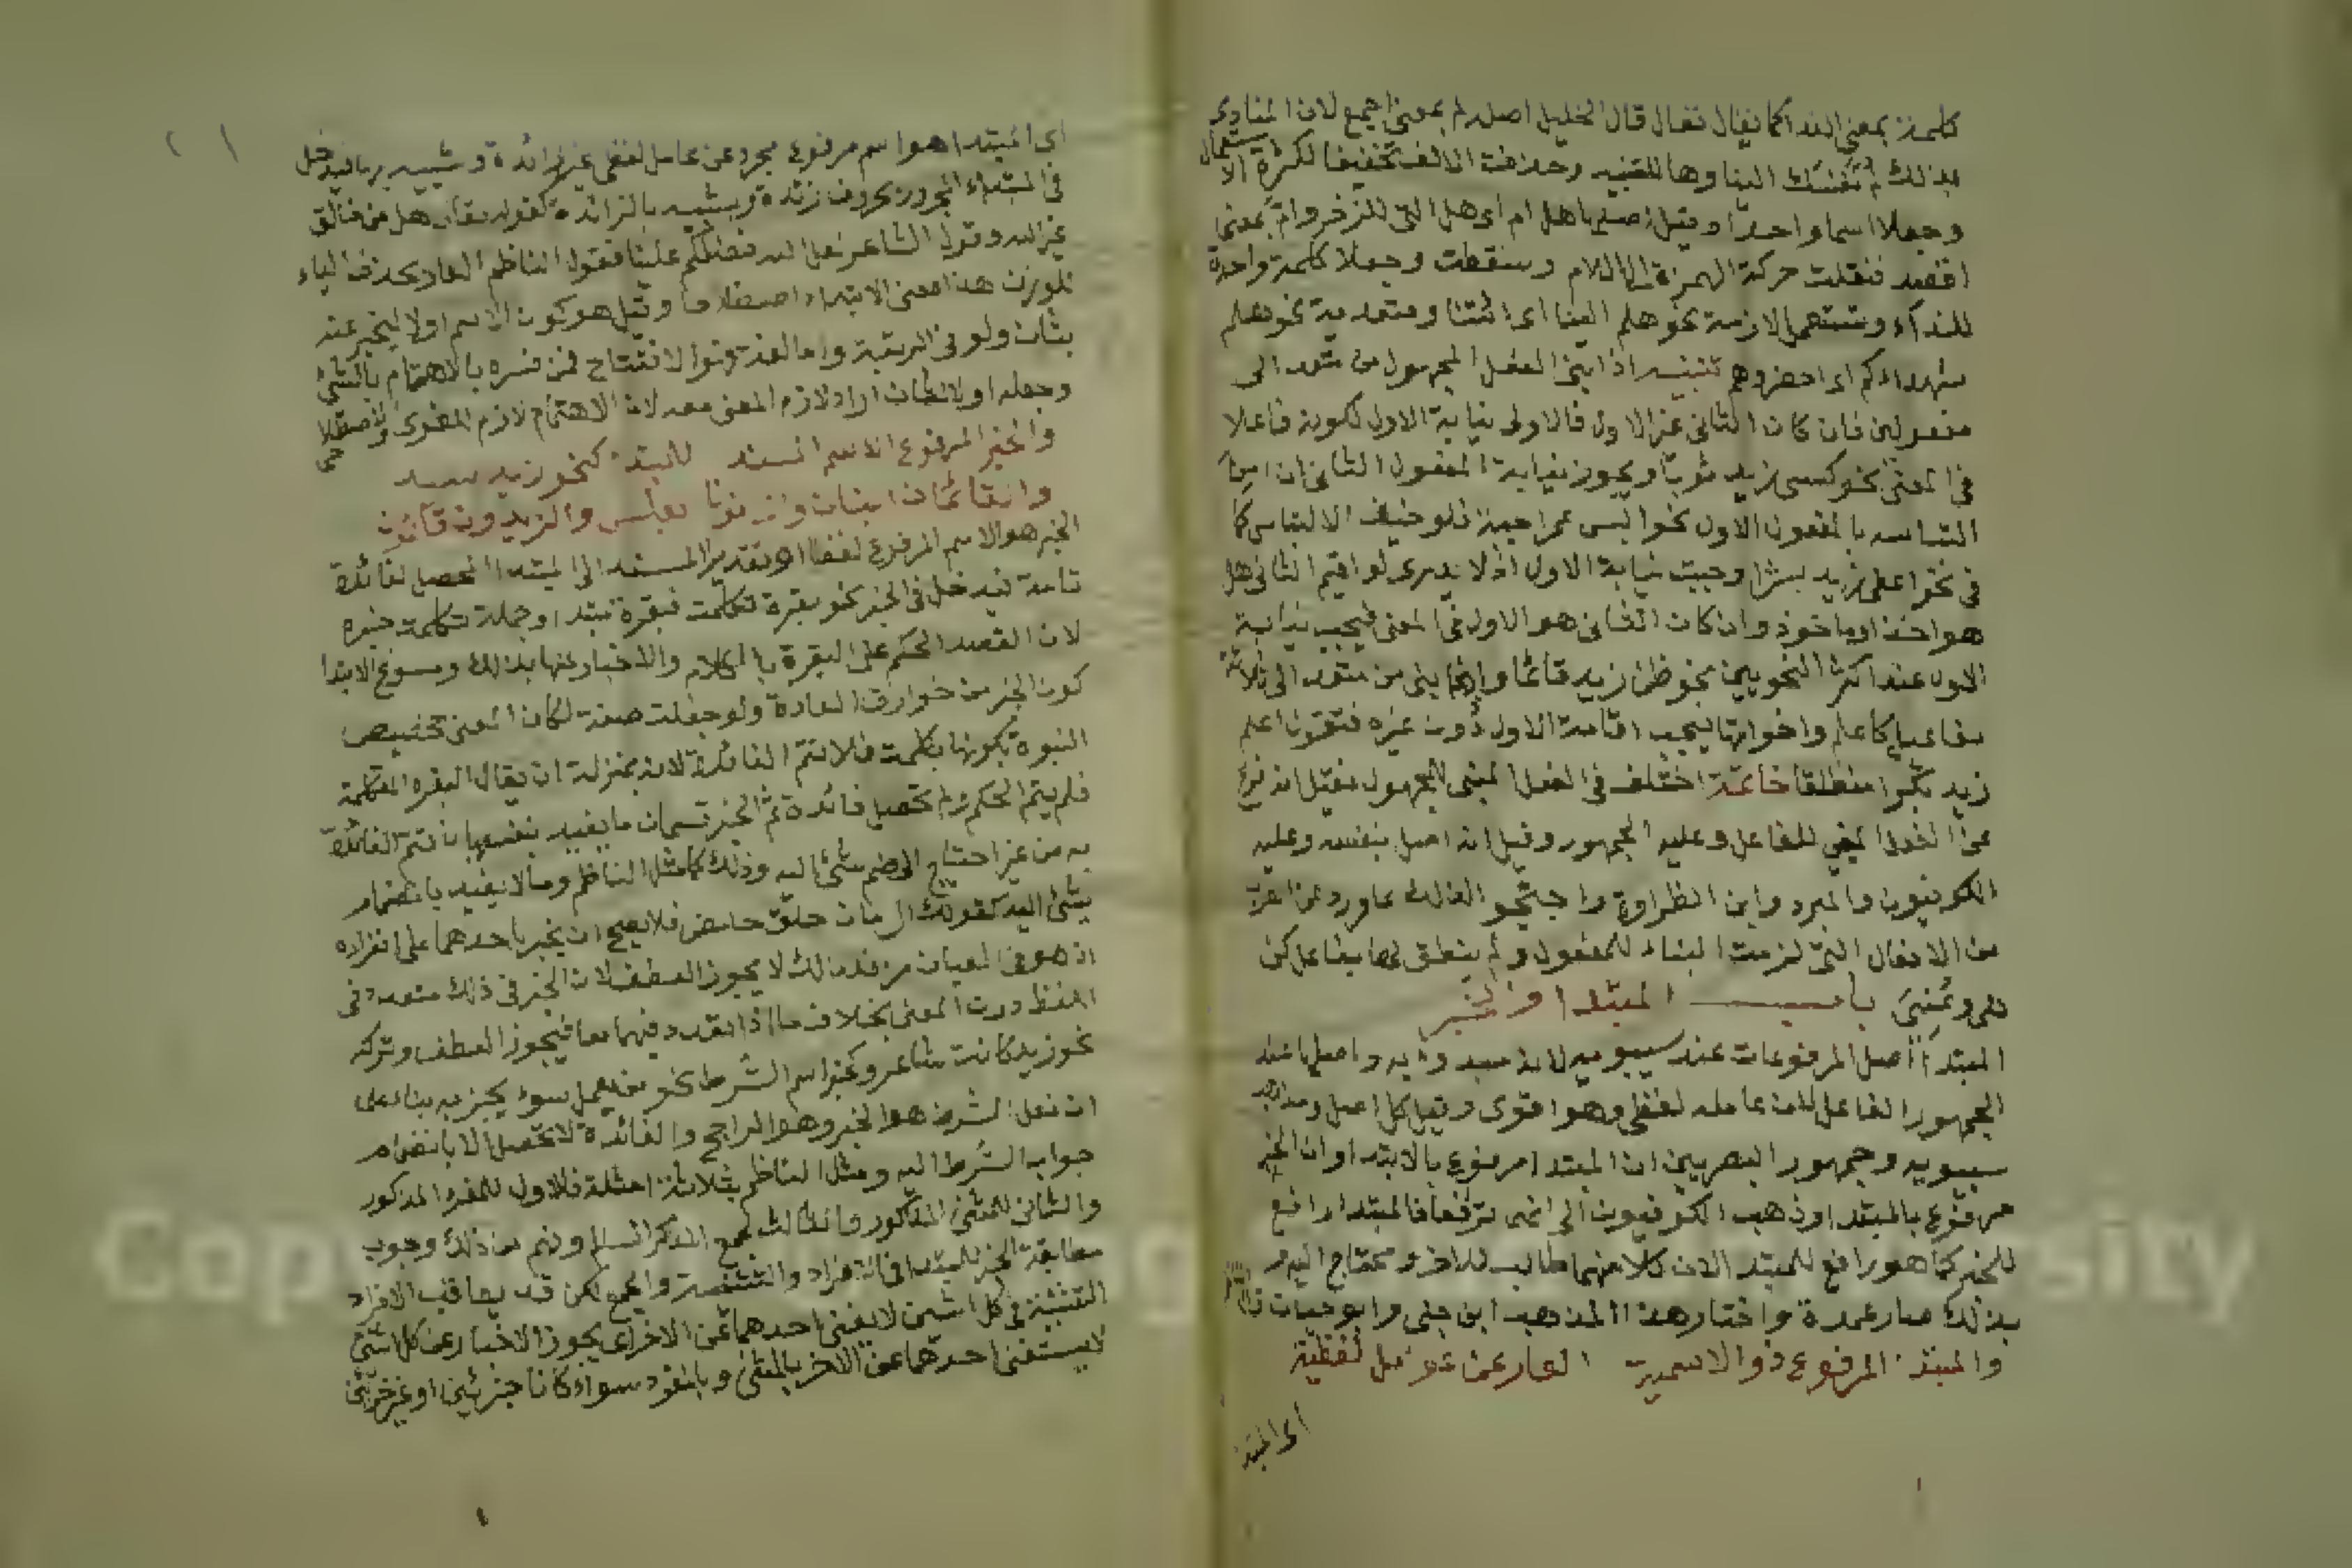 كلمة بمعنى الندا كما يقال تعال قال الخليل اصله لم بمعنى اجمع لان المنادى
بذلك لم نفسك الينا وها للتنبيه وحذفت الالف تخفيفا لكثرة الاستعمال
وجعلا اسما واحدا وقيل اصلها هل ام اى هل التى للزجر وام بمعنى
اقصد فنقلت حركة الهمزة الى اللام وسقطت وجعلا كلمة واحدة
للنداء وتستعمل لازمة نحو هلم الينا اى ائتنا ومتعدية نحو هلم
شهداءكم اى احضروهم تنبيه اذا بنى الفعل المجهول من متعد الى
مفعولين فان كان الثانى غير الاول فالاولى نيابة الاول لكونه فاعلا
فى المعنى نحو كسى زيد ثوبا ويجوز نيابة المفعول الثانى ان امن
التباسه بالمفعول الاول نحو البس عمرا جبة فلو خيف الالتباس كما
فى نحو اعطى زيد بشرا وجبت نيابة الاول اذ لا يدرى لو اقيم الثانى هل
هو اخذ او ماخوذ وان كان الثانى هو الاول فى المعنى فيجب نيابة
الاول عند اكثر النحويين نحو ظن زيد قائما وانما بنى من متعد الى ثلاثة
مفاعيل كاعلم واخواتها يجب اقامة الاول دون غيره فتقول اعلم
زيد بكرا منطلقا خاتمة اختلف فى الفعل المبنى للمجهول فقيل انه فرع
عن الفعل المبنى للفاعل وعليه الجمهور وقيل انه اصل بنفسه وعليه
الكوفيون والمبرد وابن الطراوة واحتجوا لذلك بما ورد عن العرب
من الافعال التى لزمت البناء للمفعول ولم ينطق لها بفاعل كزهى
وعنى باب المبتدا والخبر
المبتدا اصل المرفوعات عند سيبويه لانه مبدوء به واصلها عند
الجمهور الفاعل لان عامله لفظى وهو اقوى وقيل كل اصل ومذهب
سيبويه وجمهور البصريين ان المبتدا مرفوع بالابتدا وان الخبر
مرفوع بالمبتدا وذهب الكوفيون الى انهما ترافعا فالمبتدا رافع
للخبر كما هو رافع للمبتدا لان كلا منهما طالب للاخر ومحتاج اليه
بذلك صار عمدة واختار هذا المذهب ابن جنى وابو حيان
والمبتدا المرفوع ذو الاسمية العار عن عوامل لفظية
اى المبتدا
اى المبتدا هو اسم مرفوع مجرد عن عامل لفظى غير زائدة وشبيه بها فيدخل
فى المبتداء المجرور بحروف زئدة وبشبيه بالزائدة كقوله تعالى هل من خالق
غير الله وقول الشاعر لعل الله فضلكم علينا فقول الناظم العار بحذف الياء
للوزن هذا معنى الابتداء اصطلاحا وقيل هو كون الاسم اولا ليخبر عنه
بثان ولو فى الرتبة واما لغة فهو الافتتاح فمن فسره بالاهتمام بالشئ
وجعله اولا لثان اراد لازم المعنى معه لان الاهتمام لازم اللغوى والاصطلاحى
والخبر المرفوع الاسم المسند للمبتدا كنحو زيد سيد
وانقائمان ابنان وا نونا مجلس والزيدون قائمون
الخبر هو الاسم المرفوع لفظا او تقديرا المسند الى المبتدا المحصل لفائدة
تامة فيدخل فى الخبر نحو بقرة تكلمت فبقرة مبتدا وجملة تكلمت خبره
لان القصد الحكم على البقرة بالكلام والاخبار عنها بذلك ومسوغ الابتدا
كون الخبر من خوارق العادة ولو جعلت صفة لكان المعنى تخصيص
البقرة بكونها تكلمت فلا تتم الفائدة لانه بمنزلة ان يقال البقرة المتكلمة
فلم يتم الحكم ولم تحصل فائدة ثم الخبر قسمان ما يفيد بنفسه بان تتم الفائدة
به من غير احتياج الى ضم شئ اليه وذلك كما مثل الناظم وما لا يفيد بانضمام
شئ اليه كقولك الرمان حلو حامض فلا يصح ان يخبر باحدهما على انفراده
اذ هو فى المعيان مز فلذلك لا يجوز العطف لان الخبر فى ذلك متعدد فى
اللفظ دون المعنى بخلاف ما اذا تعدد فيهما معا فيجوز العطف وتركه
نحو زيد كاتب شاعر وكخبر اسم الشرط نحو من يعمل سوء يجز به بناء على
ان فعل الشرط هو الخبر وهو الراجح والفائدة لا تحصل الا بانضمام
جواب الشرط اليه ومثل الناظم بثلاثة امثلة فالاول للمفرد المذكور
والثانى للمثنى المذكور والثالث لجمع المذكر السالم وفهم من ذلك وجوب
مطابقة الخبر للمبتدا فى الافراد والتثنية والجمع لكن قد يعاقب الافراد
التثنية فى كل اثنين لا يغنى احدهما عن الاخر اى يجوز الاخبار عن كل اثنين
لا يستغنى احدهما عن الاخر بالمثنى وبالمفرد سواء كانا جزئين او غير جزئين